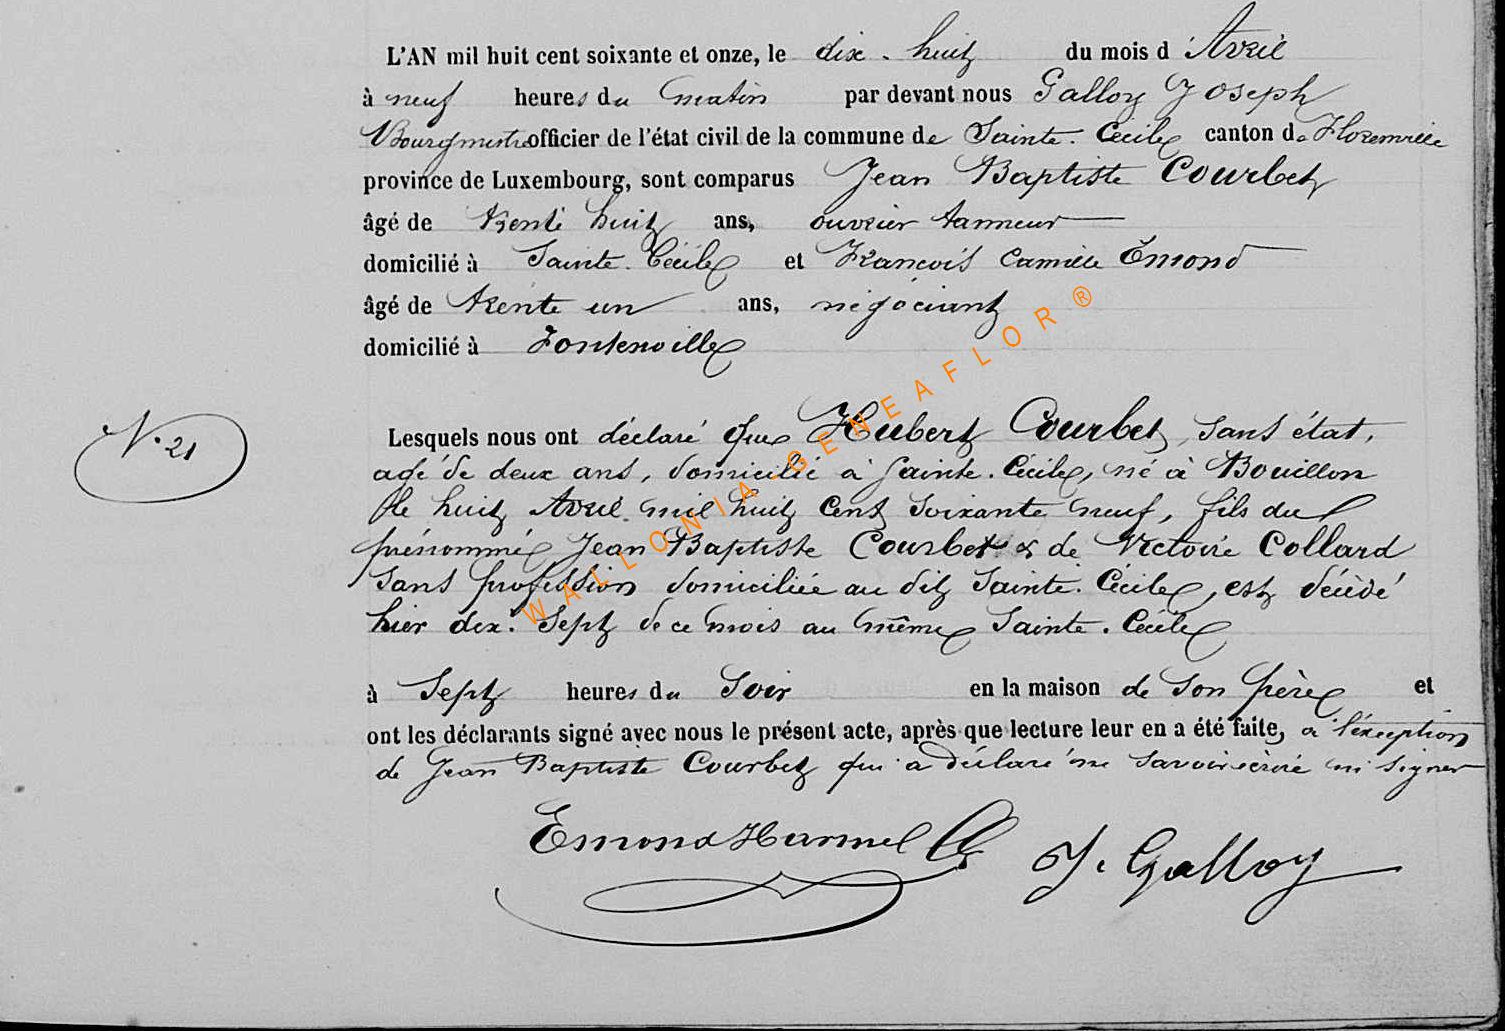 L'AN mil huit cent soixante et onze, le dix-huit du mois d'Avril
à neuf heures du matin par devant nous Galloy Joseph
Bourgmestre officier de l'état civil de la commune de Sainte-Cécile canton de Florenville
province de Luxembourg, sont comparus Jean Baptiste Courbet
âgé de trente huit ans, ouvrier tanneur
domicilié à Sainte-Cécile et François Camille Emond
âgé de trente un ans, négociant
domicilié à Fontenoille
N. 21
Lesquels nous ont déclaré que Hubert Courbet, sans état,
agé de deux ans, domicilié à Sainte-Cécile, né à Bouillon
le huit Avril mil huit cent soixante neuf, fils du
prénommé Jean Baptiste Courbet & de Victoire Collard
sans profession domiciliée au dit Sainte-Cécile, est décédé
hier dix-sept de ce mois au même Sainte-Cécile
à sept heures du soir en la maison de son père et
ont les déclarants signé avec nous le présent acte, après que lecture leur en a été faite, à l'exception
de Jean Baptiste Courbet qui a déclaré ne savoir écrire ni signer
Emond Harmel J. Galloy
WALLONIA GENEAFLOR ®